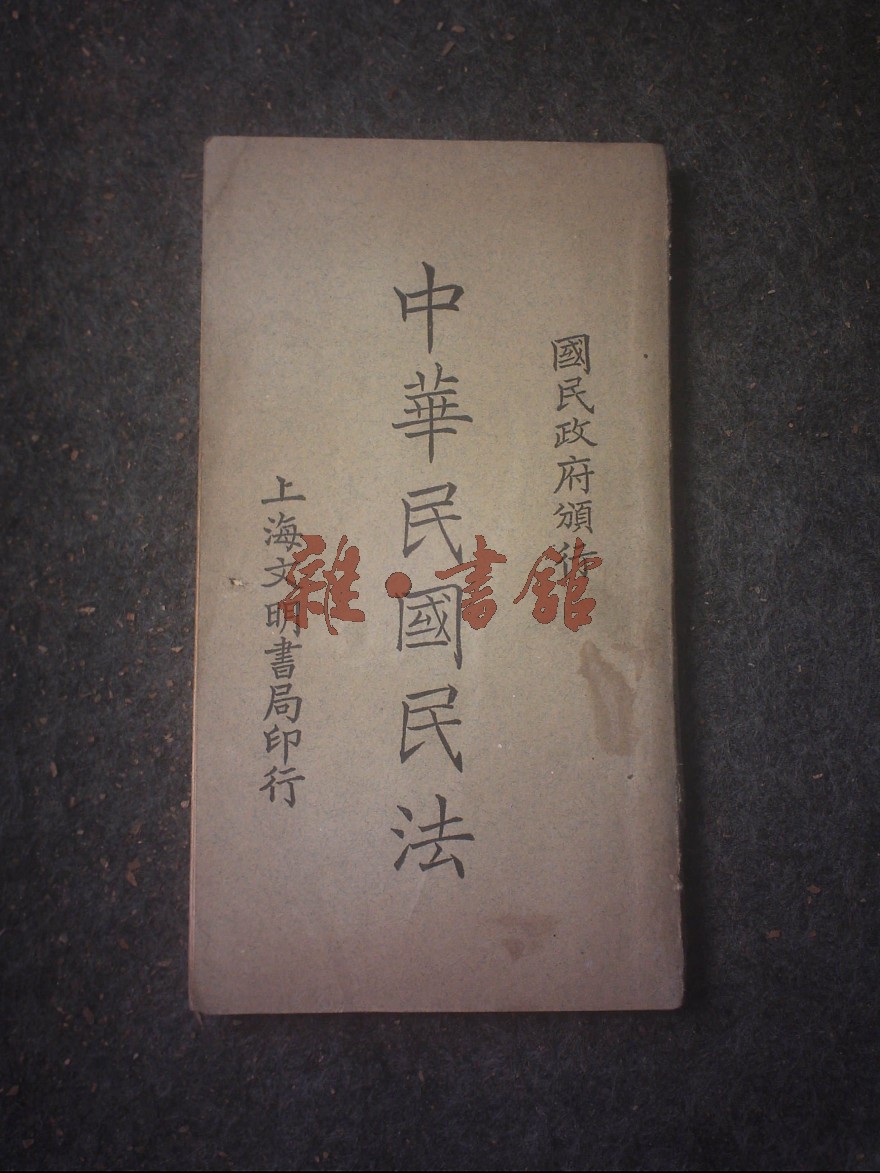 國民政府頒行
中華民國民法
上海文明書局印行
雜·書館